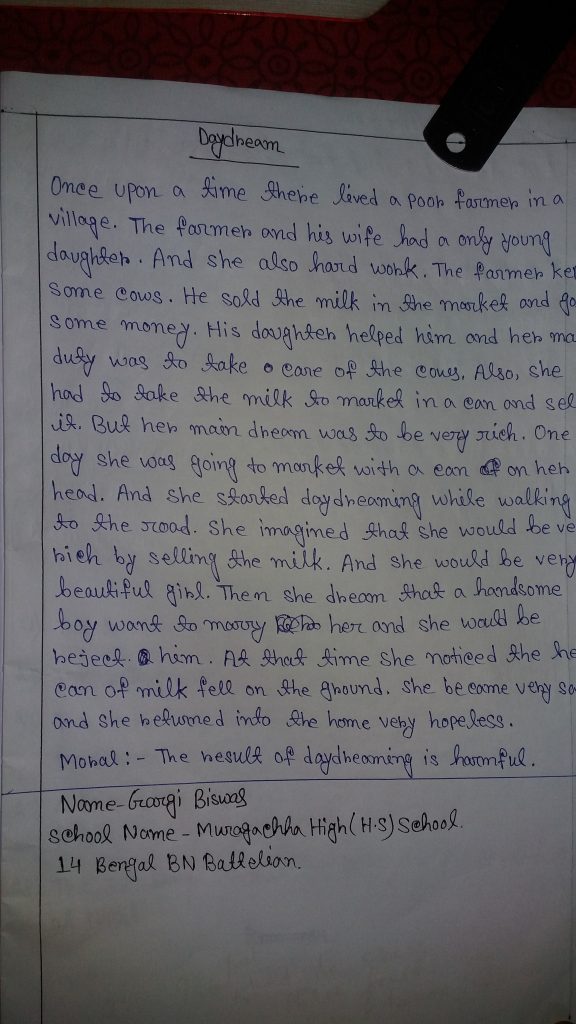 Daydream
Once upon a time there lived a poor farmer in a
village. The farmer and his wife had a only young
daughter. And she also hard work. The farmer ke
some cows. He sold the milk in the market and go
some money. His daughter helped him and her ma
duty was to take care of the cows. Also, she
had to take the milk to market in a can and sel
it. But her main dream was to be very rich. One
day she was going to market with a can on her
head. And she started daydreaming while walking
to the road. She imagined that she would be ve
rich by selling the milk. And she would be very
beautiful girl. Then she dream that a handsome
boy want to marry her and she would be
reject him. At that time she noticed the he
can of milk fell on the ground. She became very sa
and she returned into the home very hopeless.
Moral :- The result of daydreaming is harmful.
Name - Gargi Biswas
School Name - Muragachha High (H.S) School.
14 Bengal BN Battelian.